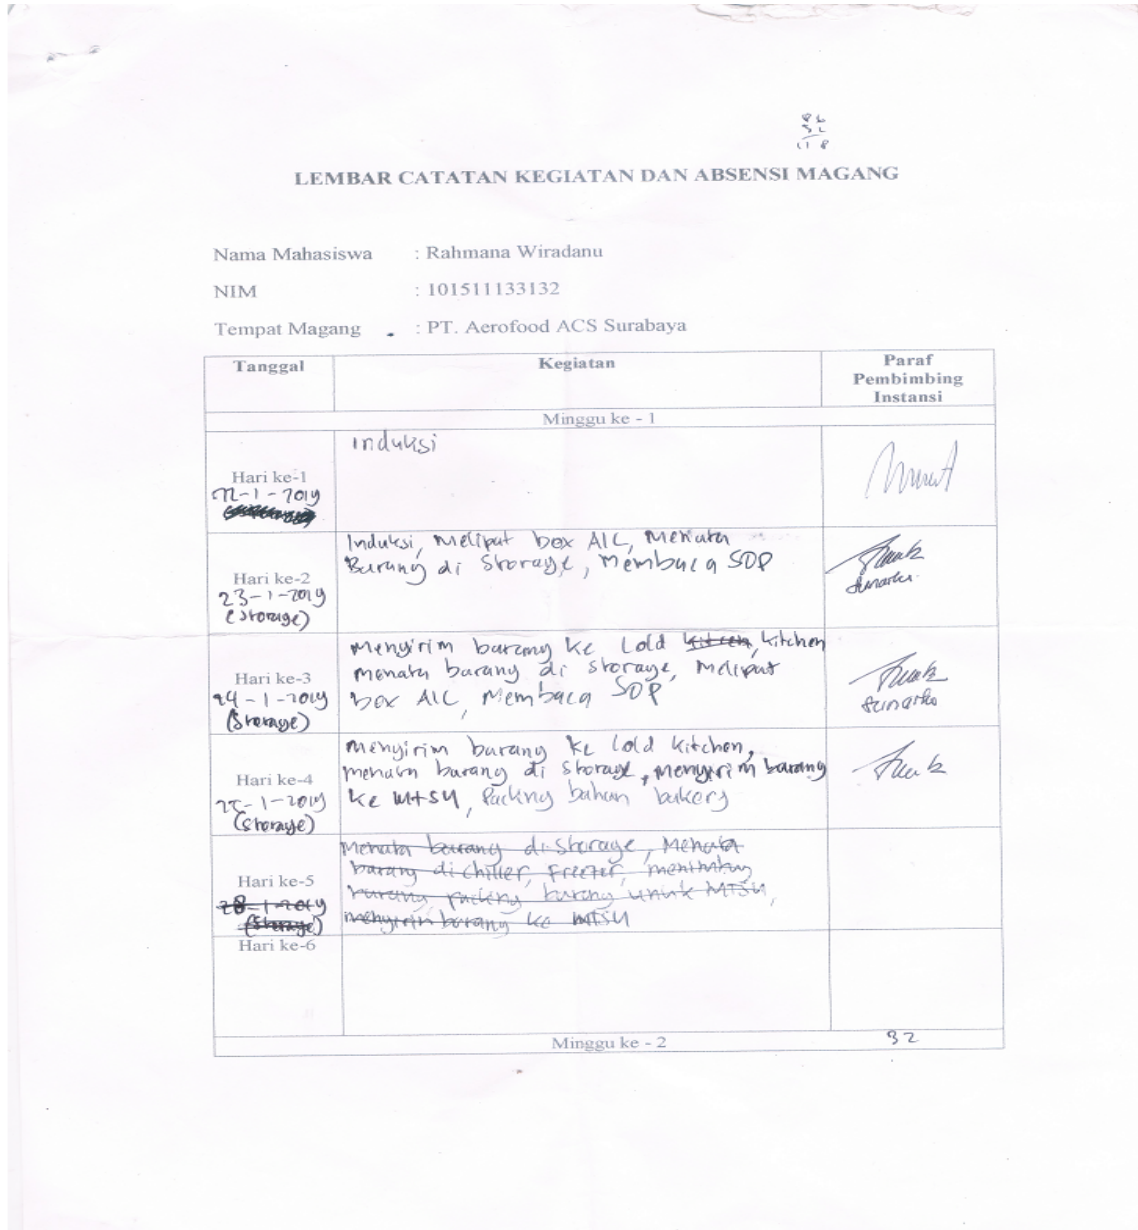 86
32
118
LEMBAR CATATAN KEGIATAN DAN ABSENSI MAGANG
Nama Mahasiswa : Rahmana Wiradanu
NIM : 101511133132
Tempat Magang : PT. Aerofood ACS Surabaya
Tanggal
Kegiatan
Paraf
Pembimbing
Instansi
Minggu ke - 1
Hari ke-1
22-1-2019
Induksi
Hari ke-2
23-1-2019
(Storage)
Induksi, Melipat box AIC, Menata
Barang di Storage, Membaca SOP
Sunarko
Hari ke-3
24-1-2019
(Storage)
Mengirim barang ke Cold kitchen, kitchen
menata barang di storage, Melipat
box AIC, Membaca SOP
Sunarko
Hari ke-4
25-1-2019
(Storage)
Mengirim barang ke Cold kitchen,
menata barang di storage, mengirim barang
ke MTSU, Packing bahan bakery
Hari ke-5
28-1-2019
(Storage)
Menata barang di storage, Menata
barang di chiller, Freezer, menimbang
barang, packing barang untuk MTSU,
mengirim barang ke MTSU
Hari ke-6
Minggu ke - 2
32